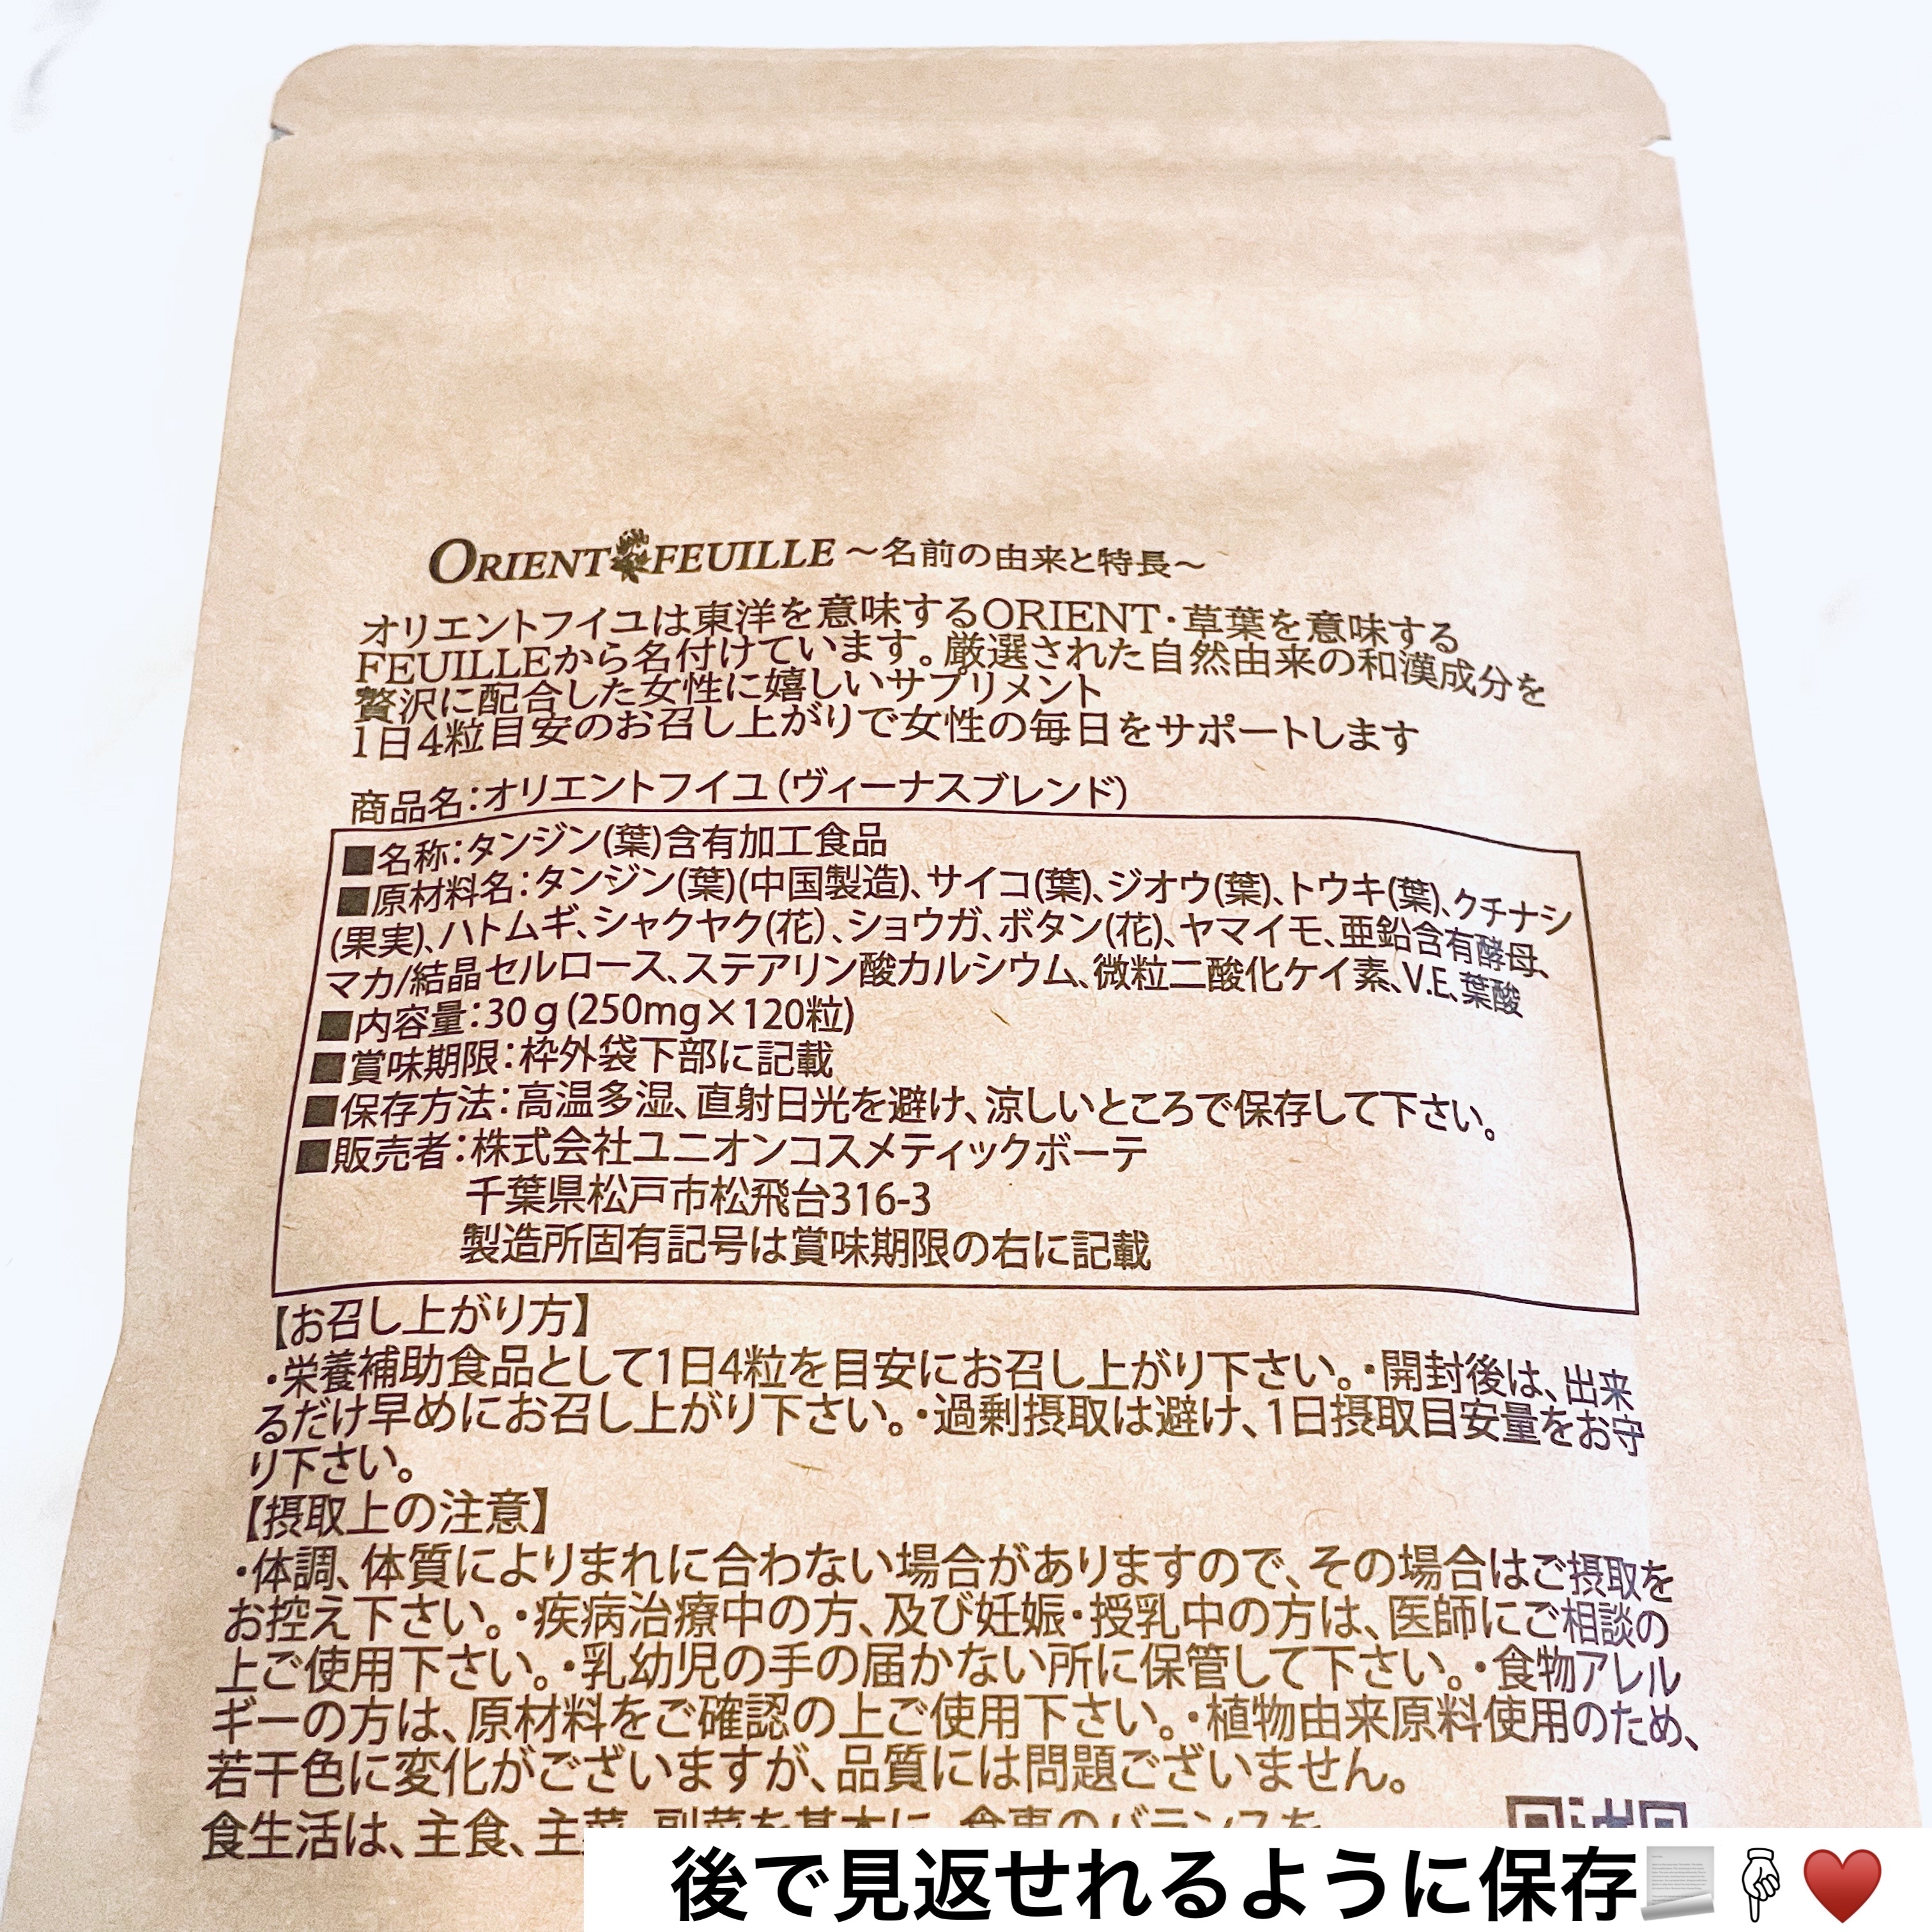 ORIENT FEUILLE ～名前の由来と特長～
オリエントフイユは東洋を意味するORIENT・草葉を意味する
FEUILLEから名付けています。厳選された自然由来の和漢成分を
贅沢に配合した女性に嬉しいサプリメント
1日4粒目安のお召し上がりで女性の毎日をサポートします
商品名：オリエントフイユ（ヴィーナスブレンド）
■名称：タンジン(葉)含有加工食品
■原材料名：タンジン(葉)(中国製造)、サイコ(葉)、ジオウ(葉)、トウキ(葉)、クチナシ
(果実)、ハトムギ、シャクヤク(花)、ショウガ、ボタン(花)、ヤマイモ、亜鉛含有酵母、
マカ/結晶セルロース、ステアリン酸カルシウム、微粒二酸化ケイ素、V.E、葉酸
■内容量：30g(250mg×120粒)
■賞味期限：枠外袋下部に記載
■保存方法：高温多湿、直射日光を避け、涼しいところで保存して下さい。
■販売者：株式会社ユニオンコスメティックボーテ
千葉県松戸市松飛台316-3
製造所固有記号は賞味期限の右に記載
【お召し上がり方】
・栄養補助食品として1日4粒を目安にお召し上がり下さい。・開封後は、出来
るだけ早めにお召し上がり下さい。・過剰摂取は避け、1日摂取目安量をお守
り下さい。
【摂取上の注意】
・体調、体質によりまれに合わない場合がありますので、その場合はご摂取を
お控え下さい。・疾病治療中の方、及び妊娠・授乳中の方は、医師にご相談の
上ご使用下さい。・乳幼児の手の届かない所に保管して下さい。・食物アレル
ギーの方は、原材料をご確認の上ご使用下さい。・植物由来原料使用のため、
若干色に変化がございますが、品質には問題ございません。
食生活は、主食、主菜、副菜を基本に、食事のバランスを
後で見返せれるように保存📃👇♥️